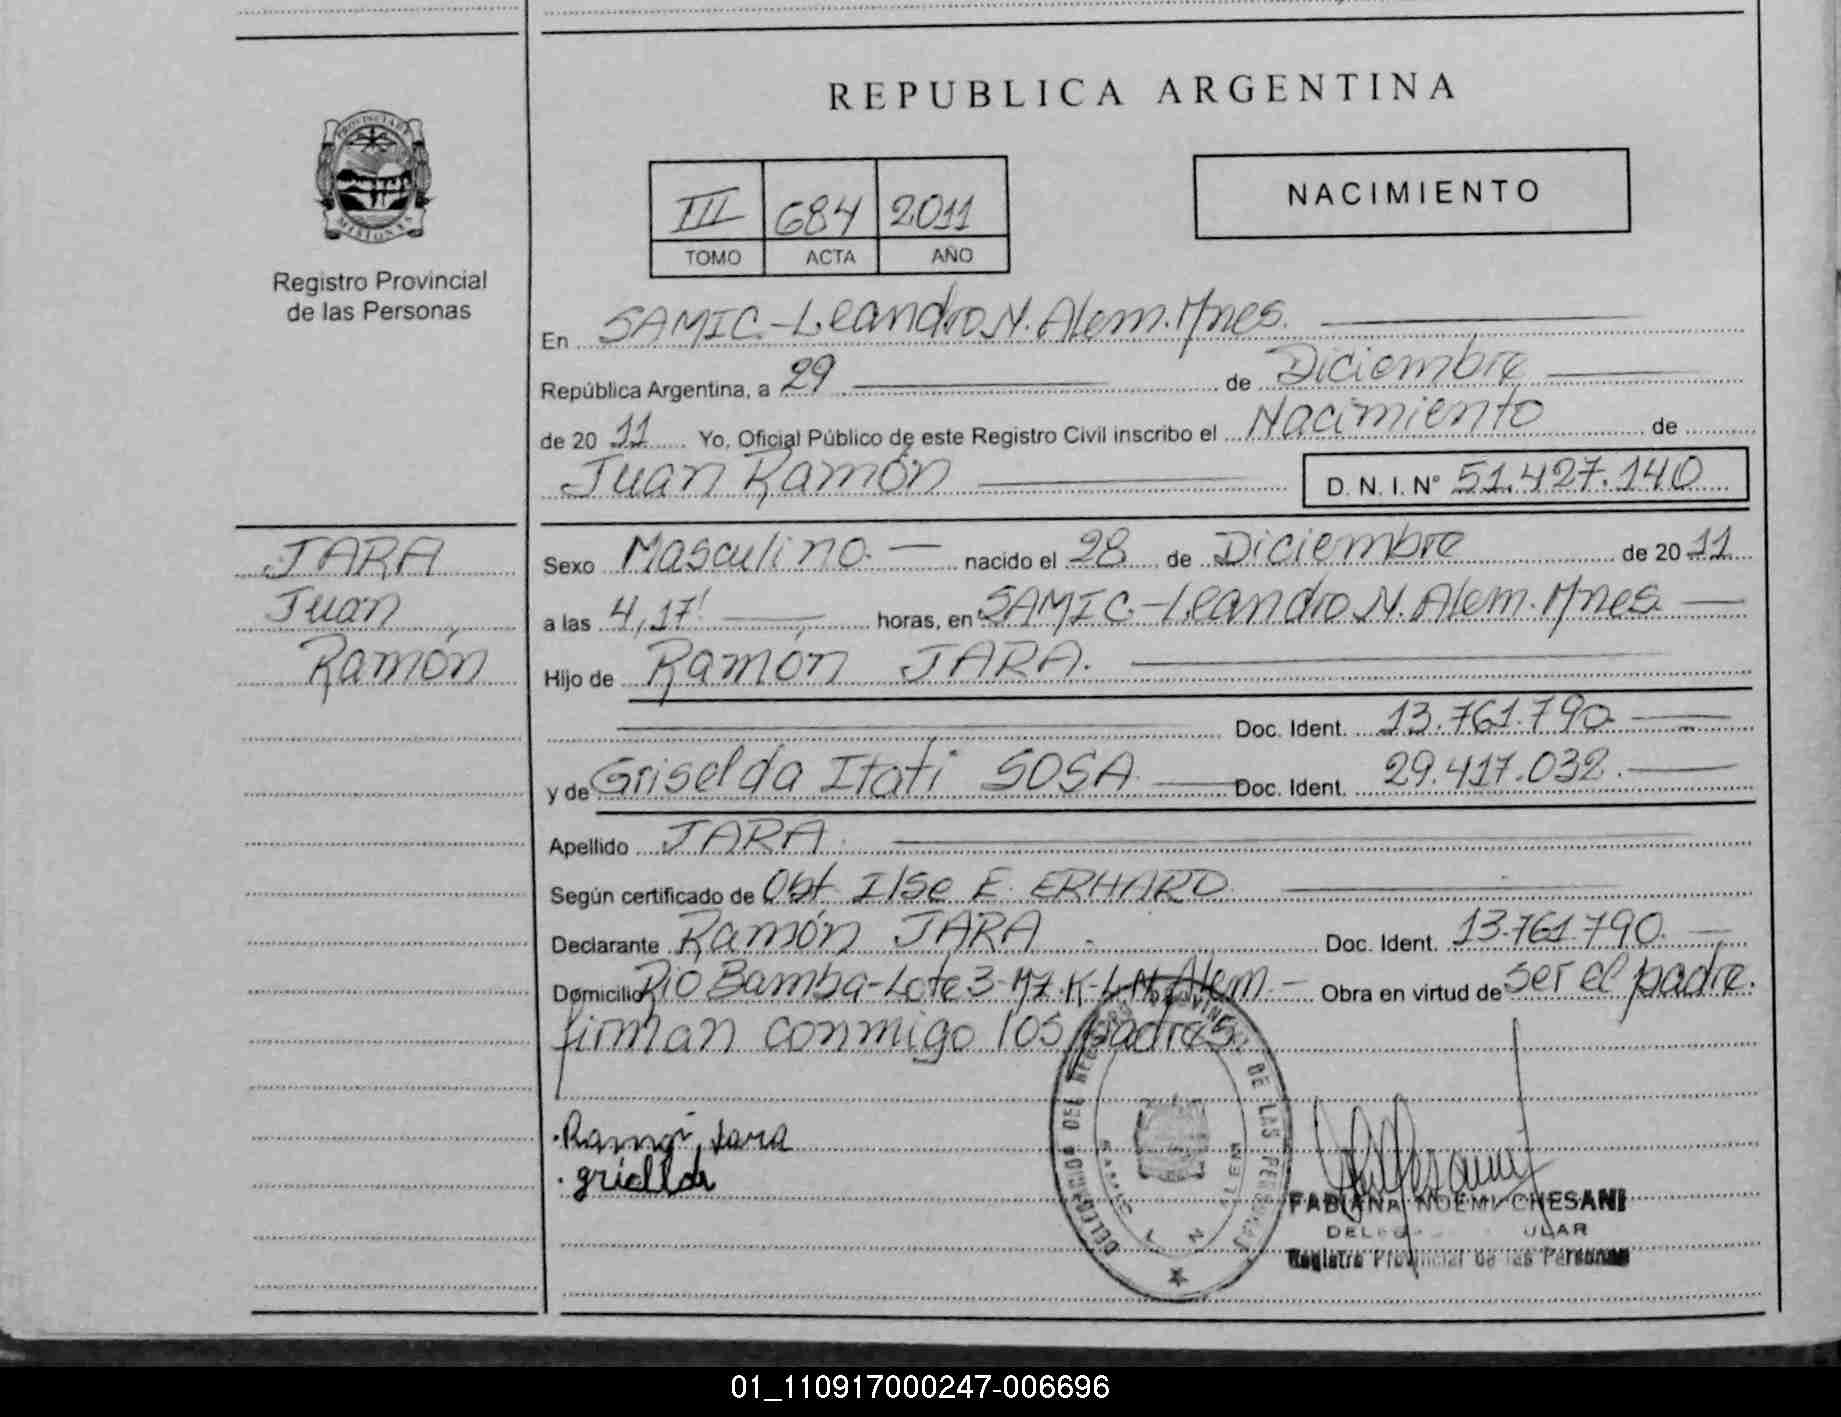 REPUBLICA ARGENTINA
PROVINCIA DE
MISIONES
Registro Provincial
de las Personas
III 684 2011
TOMO ACTA AÑO
NACIMIENTO
En SAMIC-Leandro N. Alem. Mnes.
República Argentina, a 29 de Diciembre
de 20 11 Yo, Oficial Público de este Registro Civil inscribo el Nacimiento de
Juan Ramón D. N. I. N° 51.427.140
JARA
Juan
Ramón
Sexo Masculino nacido el 28 de Diciembre de 20 11
a las 4,17' horas, en SAMIC-Leandro N. Alem. Mnes
Hijo de Ramón JARA.
Doc. Ident. 13.761.790
y de Griselda Itati SOSA Doc. Ident. 29.417.032
Apellido JARA
Según certificado de Obt. Ilse E. ERHARD
Declarante Ramón JARA Doc. Ident. 13.761.790
Domicilio Rio Bamba-Lote 3-Mz. K-L.N. Alem Obra en virtud de ser el padre.
firman conmigo los padres
DELEGACION DEL REGISTRO PROVINCIAL DE LAS PERSONAS
L. N. ALEM
Jara
FABIANA NOEMI CHESANI
Registro Provincial de las Personas
01_110917000247-006696